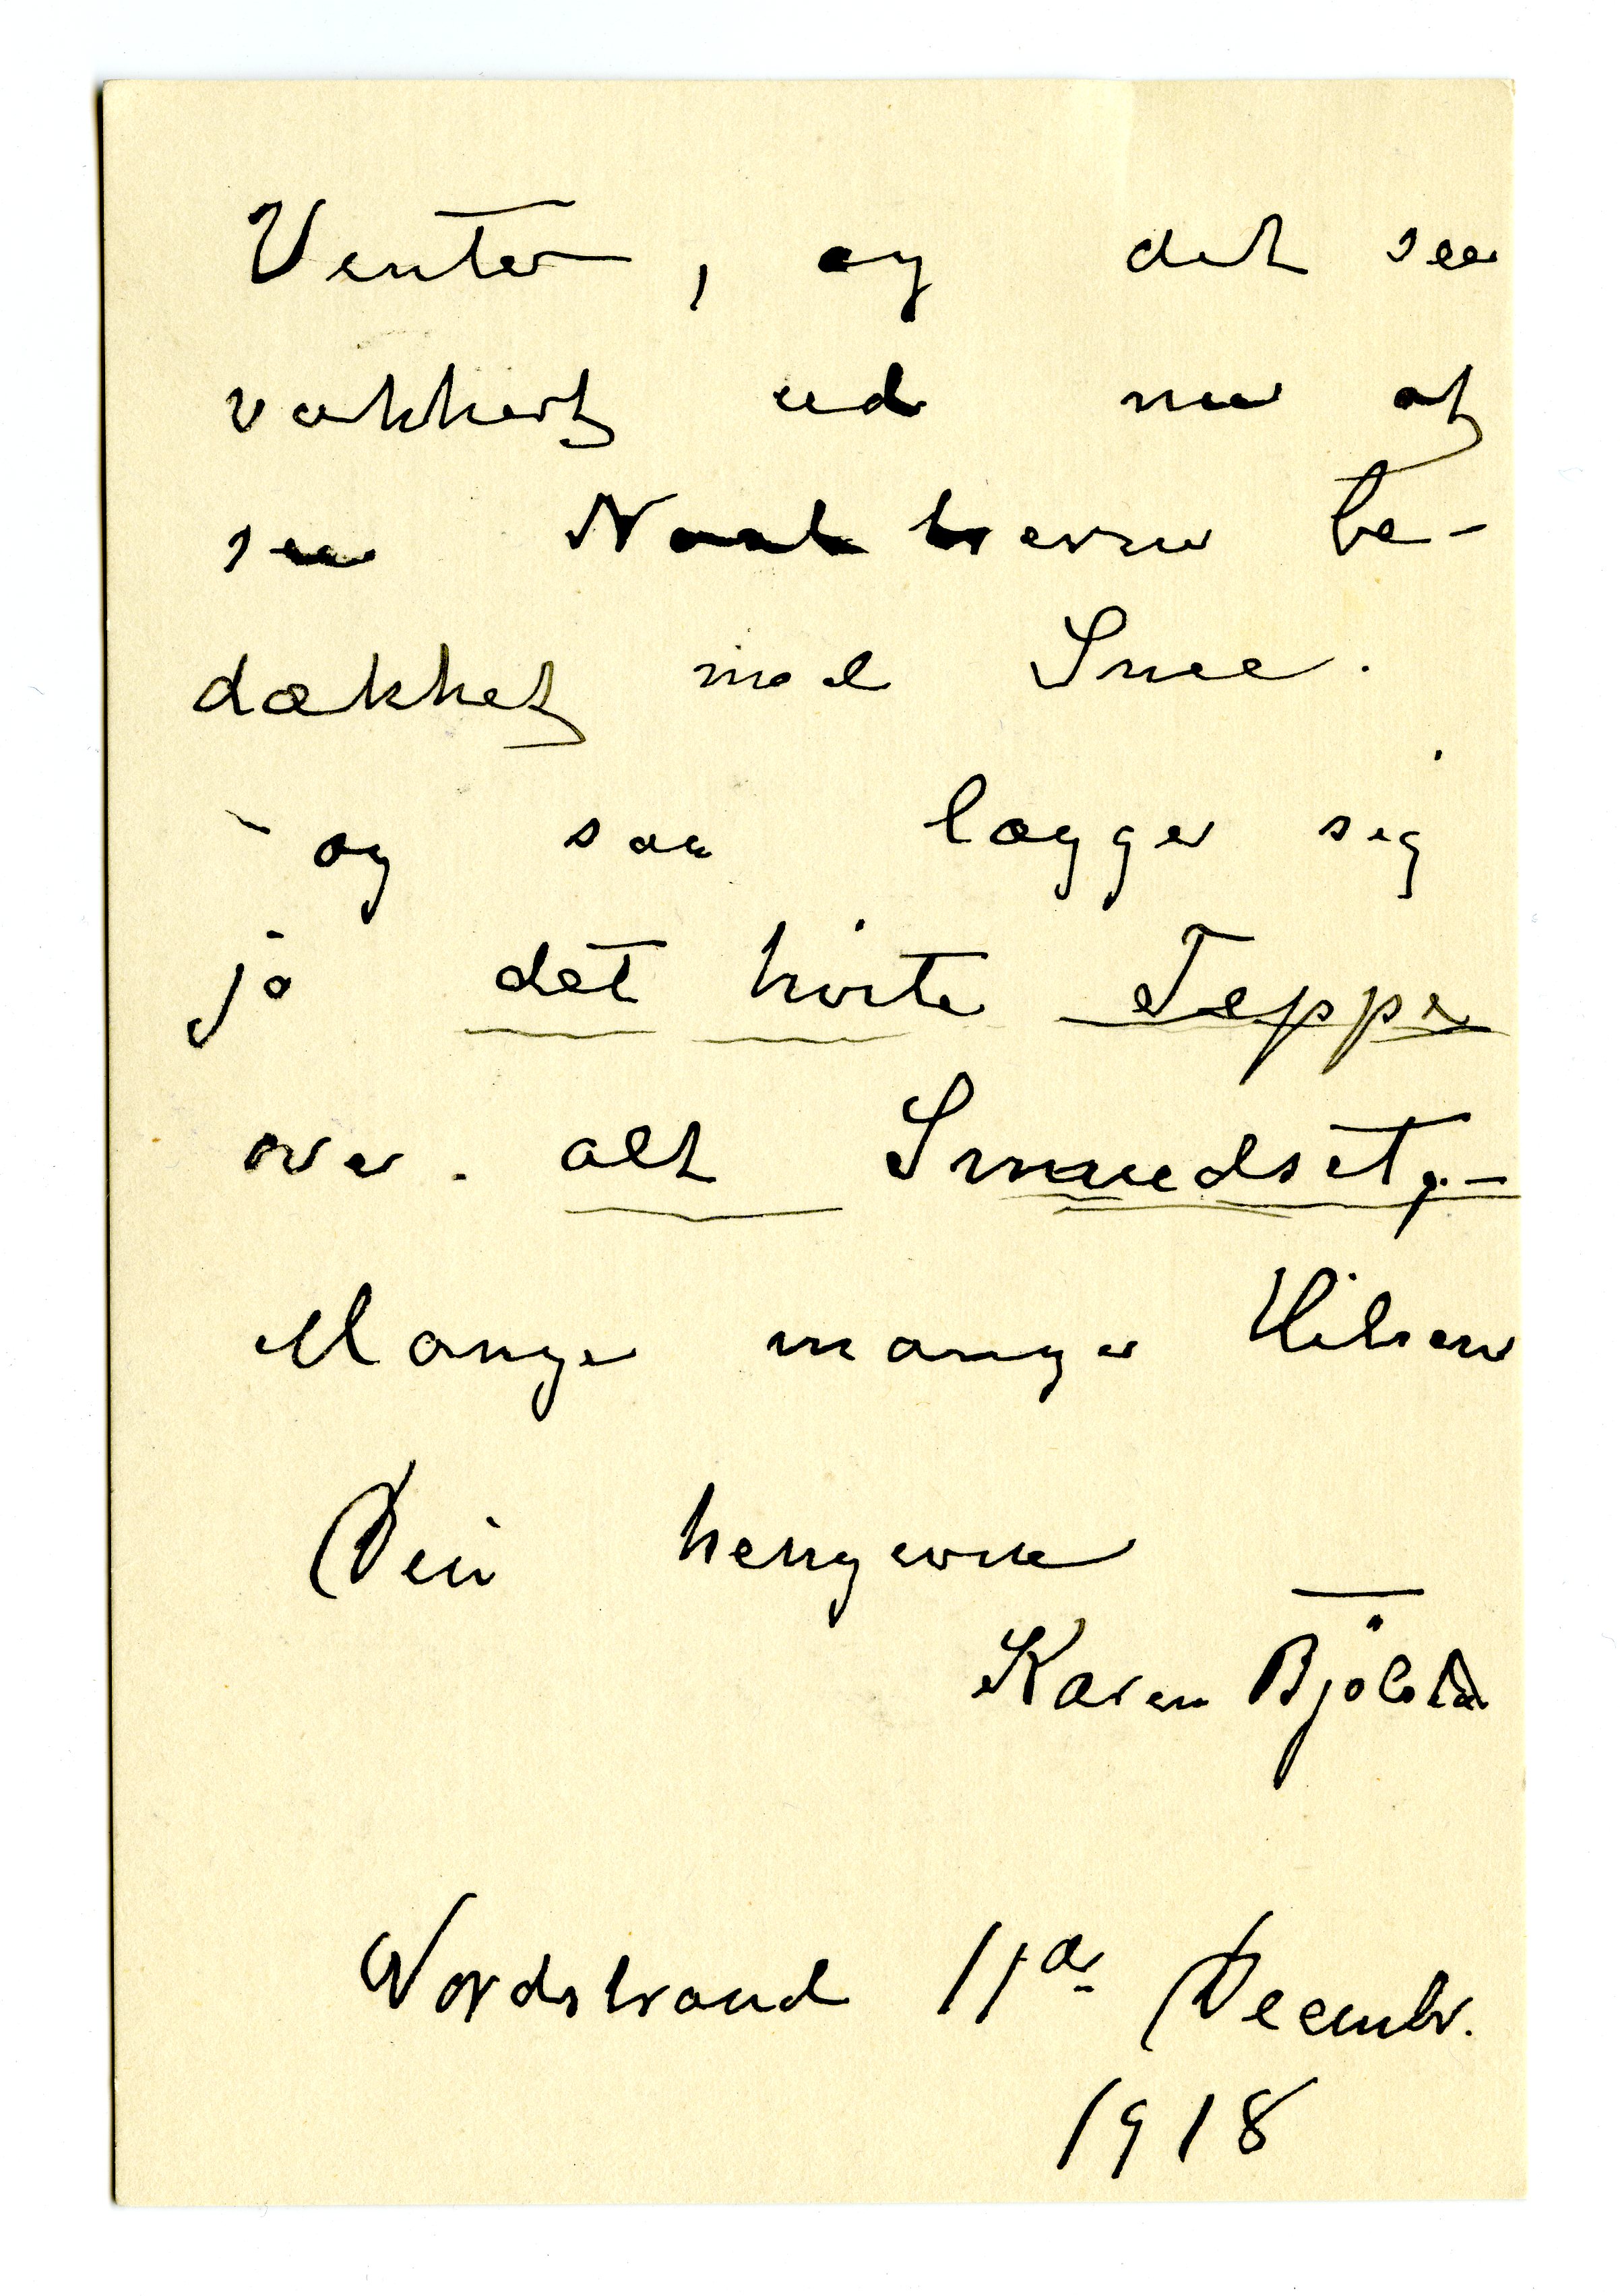 Venter, og det seer
vakkert ud nu at
see Naaltrærne be-
dækket med Snee.
- og saa lægger sig
jo det hvite Teppe
over alt Smudset. -
Mange mange Hilsen
Din hengivne
Karen Bjölstad
Nordstrand 11te Decembr.
1918